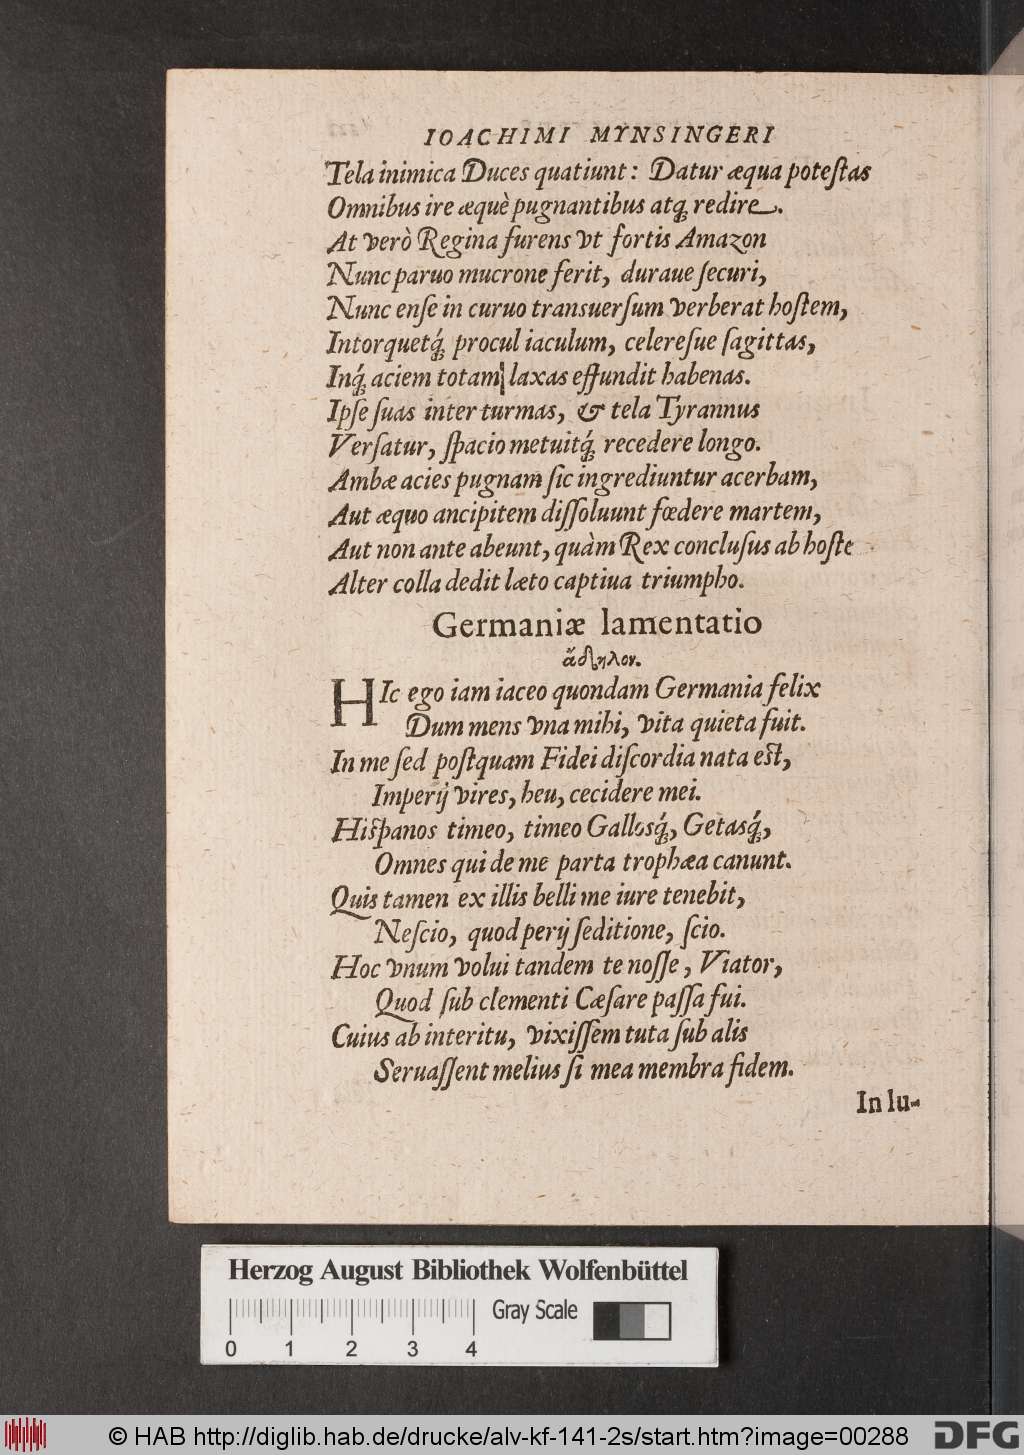 IOACHIMI MYNSINGERI
Tela inimica Duces quatiunt: Datur æqua poteſtas
Omnibus ire æquè pugnantibus atq́; redire.
At verò Regina furens vt fortis Amazon
Nunc paruo mucrone ferit, duraue ſecuri,
Nunc enſe in curuo transuerſum verberat hoſtem,
Intorquetq́; procul iaculum, celereſue ſagittas,
Inq́; aciem totam laxas effundit habenas.
Ipſe ſuas inter turmas, & tela Tyrannus
Verſatur, ſpacio metuitq́; recedere longo.
Ambæ acies pugnam ſic ingrediuntur acerbam,
Aut æquo ancipitem diſſoluunt fœdere martem,
Aut non ante abeunt, quàm Rex concluſus ab hoſte
Alter colla dedit læto captiua triumpho.
Germaniæ lamentatio
ἄδηλον.
HIc ego iam iaceo quondam Germania felix
Dum mens vna mihi, vita quieta fuit.
In me ſed poſtquam Fidei diſcordia nata eſt,
Imperij vires, heu, cecidere mei.
Hiſpanos timeo, timeo Gallosq́;, Getasq́;,
Omnes qui de me parta trophæa canunt.
Quis tamen ex illis belli me iure tenebit,
Neſcio, quod perij ſeditione, ſcio.
Hoc vnum volui tandem te noſſe, Viator,
Quod ſub clementi Cæſare paſſa fui.
Cuius ab interitu, vixiſſem tuta ſub alis
Seruaſſent melius ſi mea membra fidem.
In lu-
Herzog August Bibliothek Wolfenbüttel
Gray Scale
0 1 2 3 4
© HAB http://diglib.hab.de/drucke/alv-kf-141-2s/start.htm?image=00288
DFG